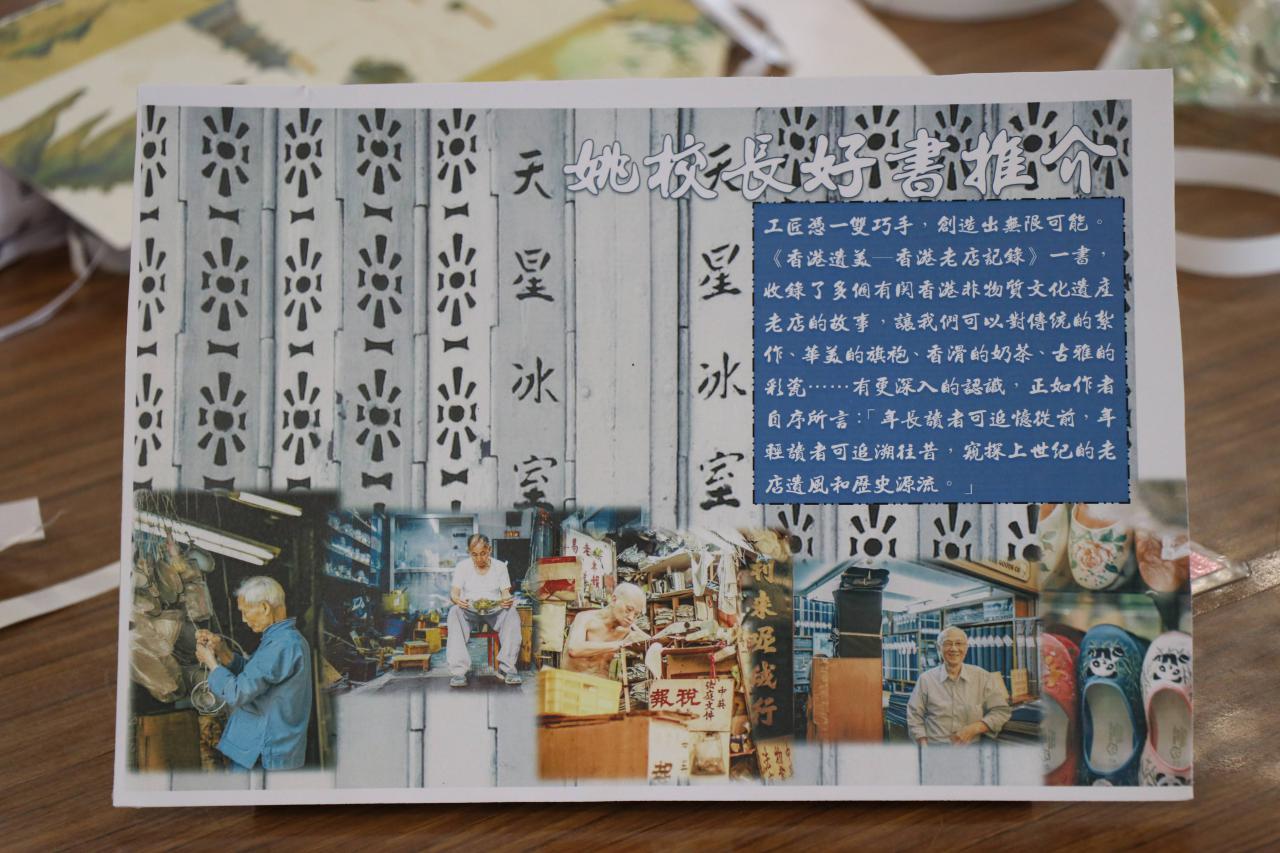 姚校長好書推介
工匠憑一雙巧手，創造出無限可能。
《香港遺美—香港老店記錄》一書，
收錄了多個有関香港非物質文化遺產
老店的故事，讓我們可以對傳統的紮
作、華美的旗袍、香滑的奶茶、古雅的
彩瓷……有更深入的認識，正如作者
自序所言：「年長讀者可追憶從前，年
輕讀者可追溯往昔，窺探上世紀的老
店遺風和歷史源流。」
天星冰室
天星冰室
報稅
中英